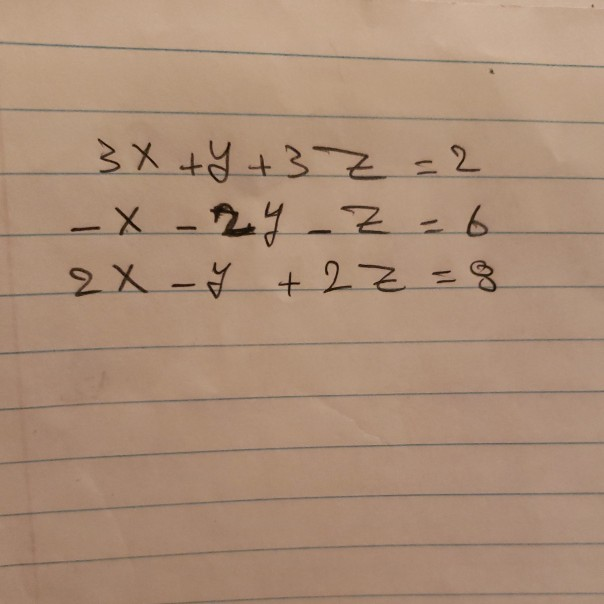 3x + y + 3z = 2
-x - 2y - z = 6
2x - y + 2z = 8